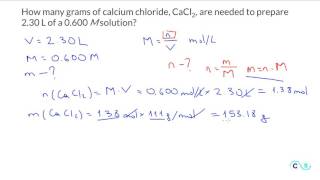 How many grams of calcium chloride, CaCl₂, are needed to prepare
2.30 L of a 0.600 M solution?
V = 2.30 L
M = n/V mol/L
M = 0.600 M
n - ?
n = m/M
m = n · M
m - ?
n (CaCl₂) = M · V = 0.600 mol/L × 2.30 L = 1.38 mol
m (CaCl₂) = 1.38 mol × 111 g/mol = 153.18 g